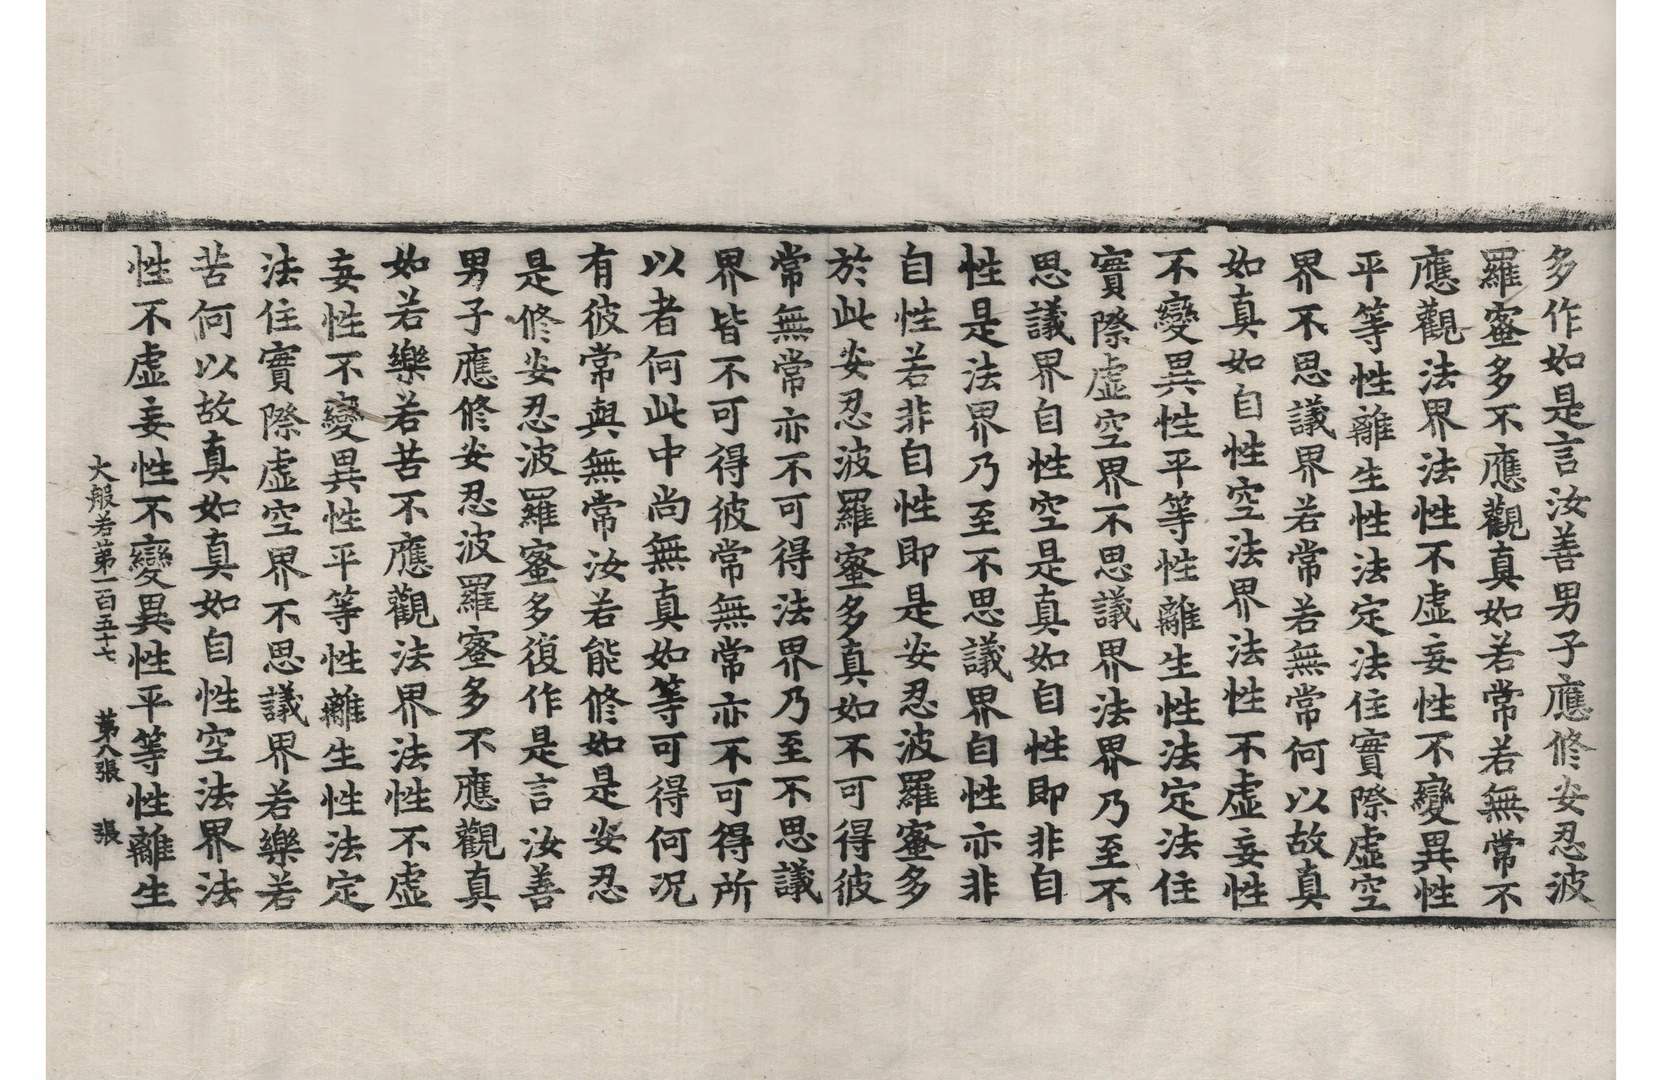 多作如是言汝善男子應修安忍波
羅蜜多不應觀真如若常若無常不
應觀法界法性不虛妄性不變異性
平等性離生性法定法住實際虛空
界不思議界若常若無常何以故真
如真如自性空法界法性不虛妄性
不變異性平等性離生性法定法住
實際虛空界不思議界法界乃至不
思議界自性空是真如自性即非自
性是法界乃至不思議界自性亦非
自性若非自性即是安忍波羅蜜多
於此安忍波羅蜜多真如不可得彼
常無常亦不可得法界乃至不思議
界皆不可得彼常無常亦不可得所
以者何此中尚無真如等可得何況
有彼常與無常汝若能修如是安忍
是修安忍波羅蜜多復作是言汝善
男子應修安忍波羅蜜多不應觀真
如若樂若苦不應觀法界法性不虛
妄性不變異性平等性離生性法定
法住實際虛空界不思議界若樂若
苦何以故真如真如自性空法界法
性不虛妄性不變異性平等性離生
大般若第一百五十七 第八張 張